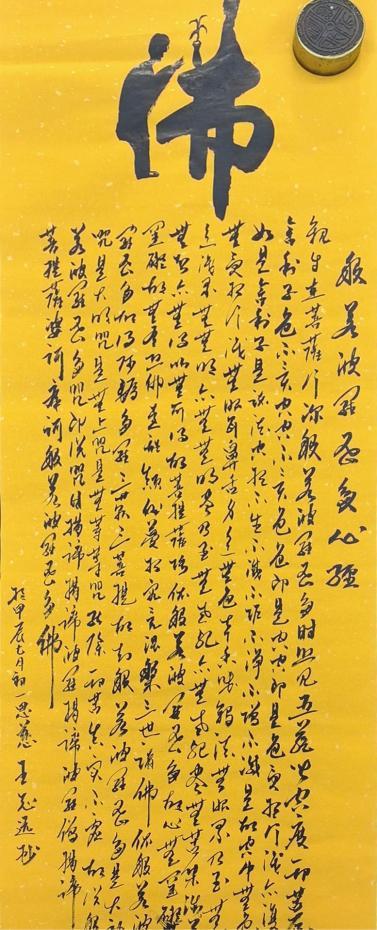 佛
般若波羅蜜多心經
觀自在菩薩行深般若波羅蜜多時照見五蘊皆空度一切苦厄
舍利子色不異空空不異色色即是空空即是色受想行識亦復
如是舍利子是諸法空相不生不滅不垢不淨不增不減是故空中無色
無受想行識無眼耳鼻舌身意無色聲香味觸法無眼界乃至無
意識界無無明亦無無明盡乃至無老死亦無老死盡無苦集滅道
無智亦無得以無所得故菩提薩埵依般若波羅蜜多故心無罣礙無
罣礙故無有恐怖遠離顛倒夢想究竟涅槃三世諸佛依般若波
羅蜜多故得阿耨多羅三藐三菩提故知般若波羅蜜多是大神
咒是大明咒是無上咒是無等等咒能除一切苦真實不虛故說般
若波羅蜜多咒即說咒曰揭諦揭諦波羅揭諦波羅僧揭諦
菩提薩婆訶摩訶般若波羅蜜多佛
於甲辰七月初一思慧王志遠抄